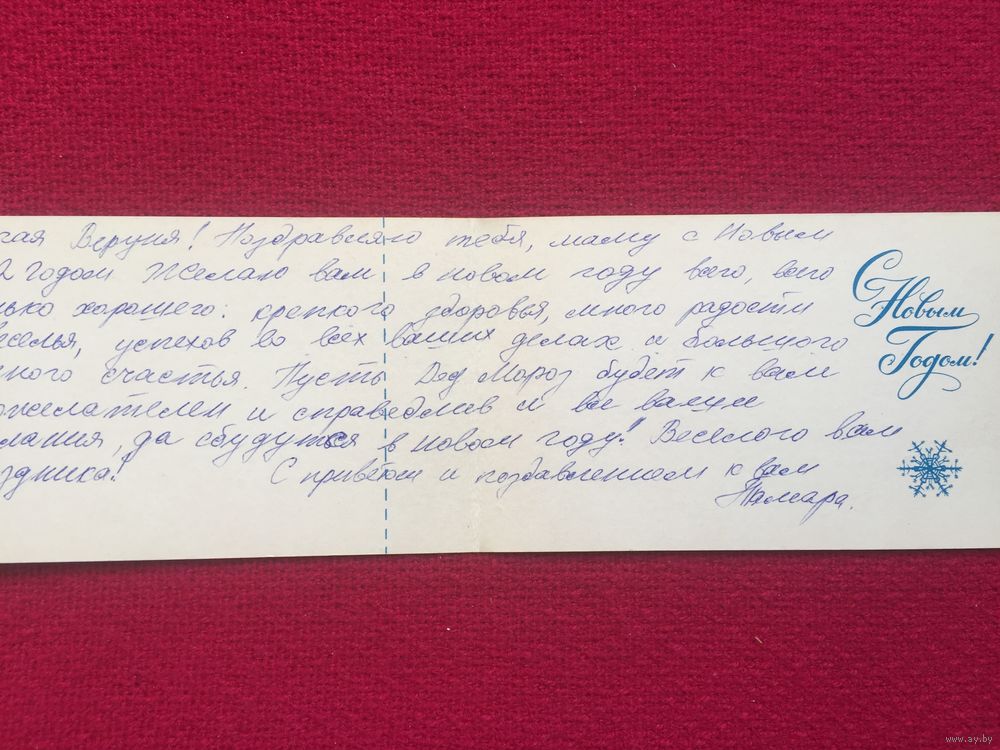 гая Веруня! Поздравляю тебя, маму с Новым
2 годом Желаю вам в новом году всего, всего
лько хорошего: крепкого здоровья, много радости
веселья, успехов во всех ваших делах и большого
много счастья. Пусть Дед Мороз будет к вам
ожелателен и справедлив и все ваши
лания, да сбудутся в новом году! Веселого вам
здника!
С приветом и поздравлением к вам
Тамара.
С Новым
Годом!
www.ay.by